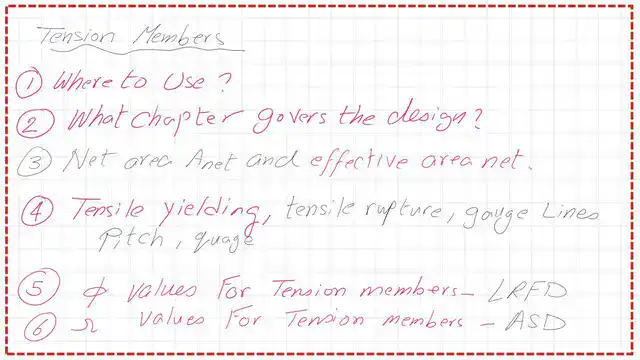 Tension Members
① Where to Use?
② What Chapter govers the design?
③ Net area Anet and effective area net.
④ Tensile yielding, tensile rupture, gauge Lines
Pitch, quage
⑤ φ values For Tension members - LRFD
⑥ Ω values For Tension members - ASD